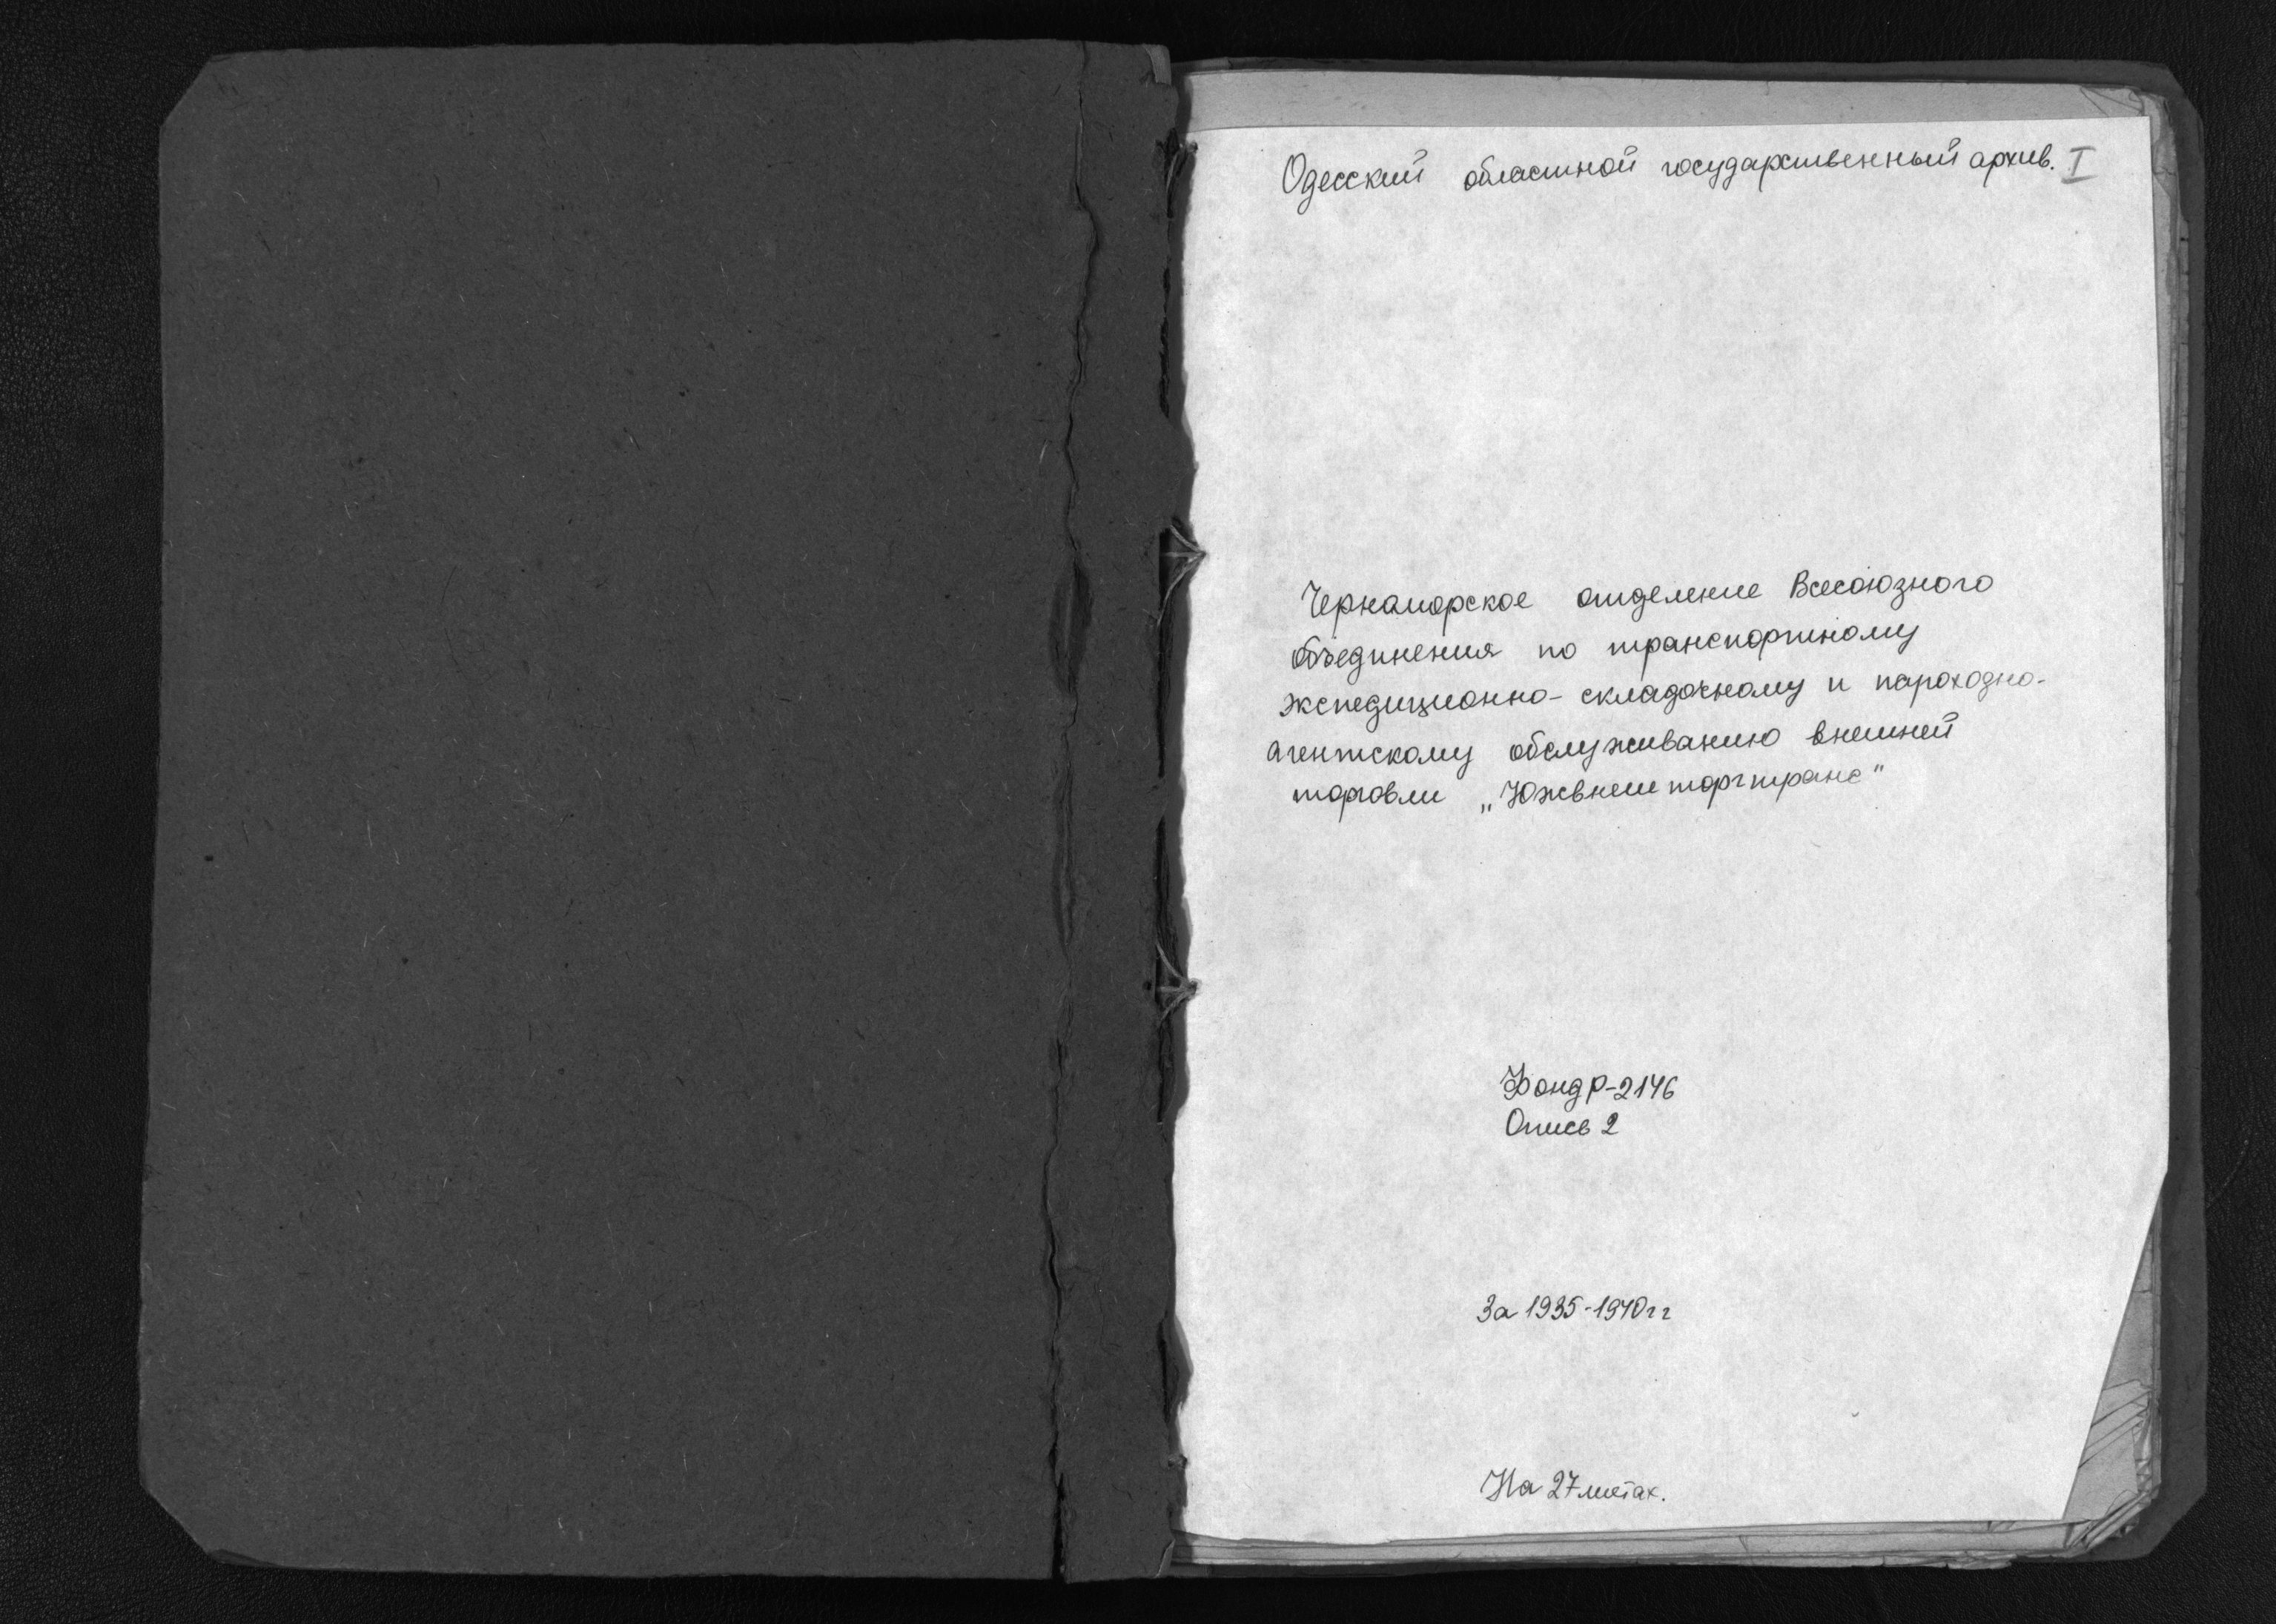 Одесский областной государственный архив. I
Черноморское отделение Всесоюзного
объединения по транспортному
экспедиционно-складочному и пароходно-
агентскому обслуживанию внешней
торговли „Южвнешторгтранс"
Фонд р-2146
Опись 2
За 1935-1940 гг
На 27 листах.